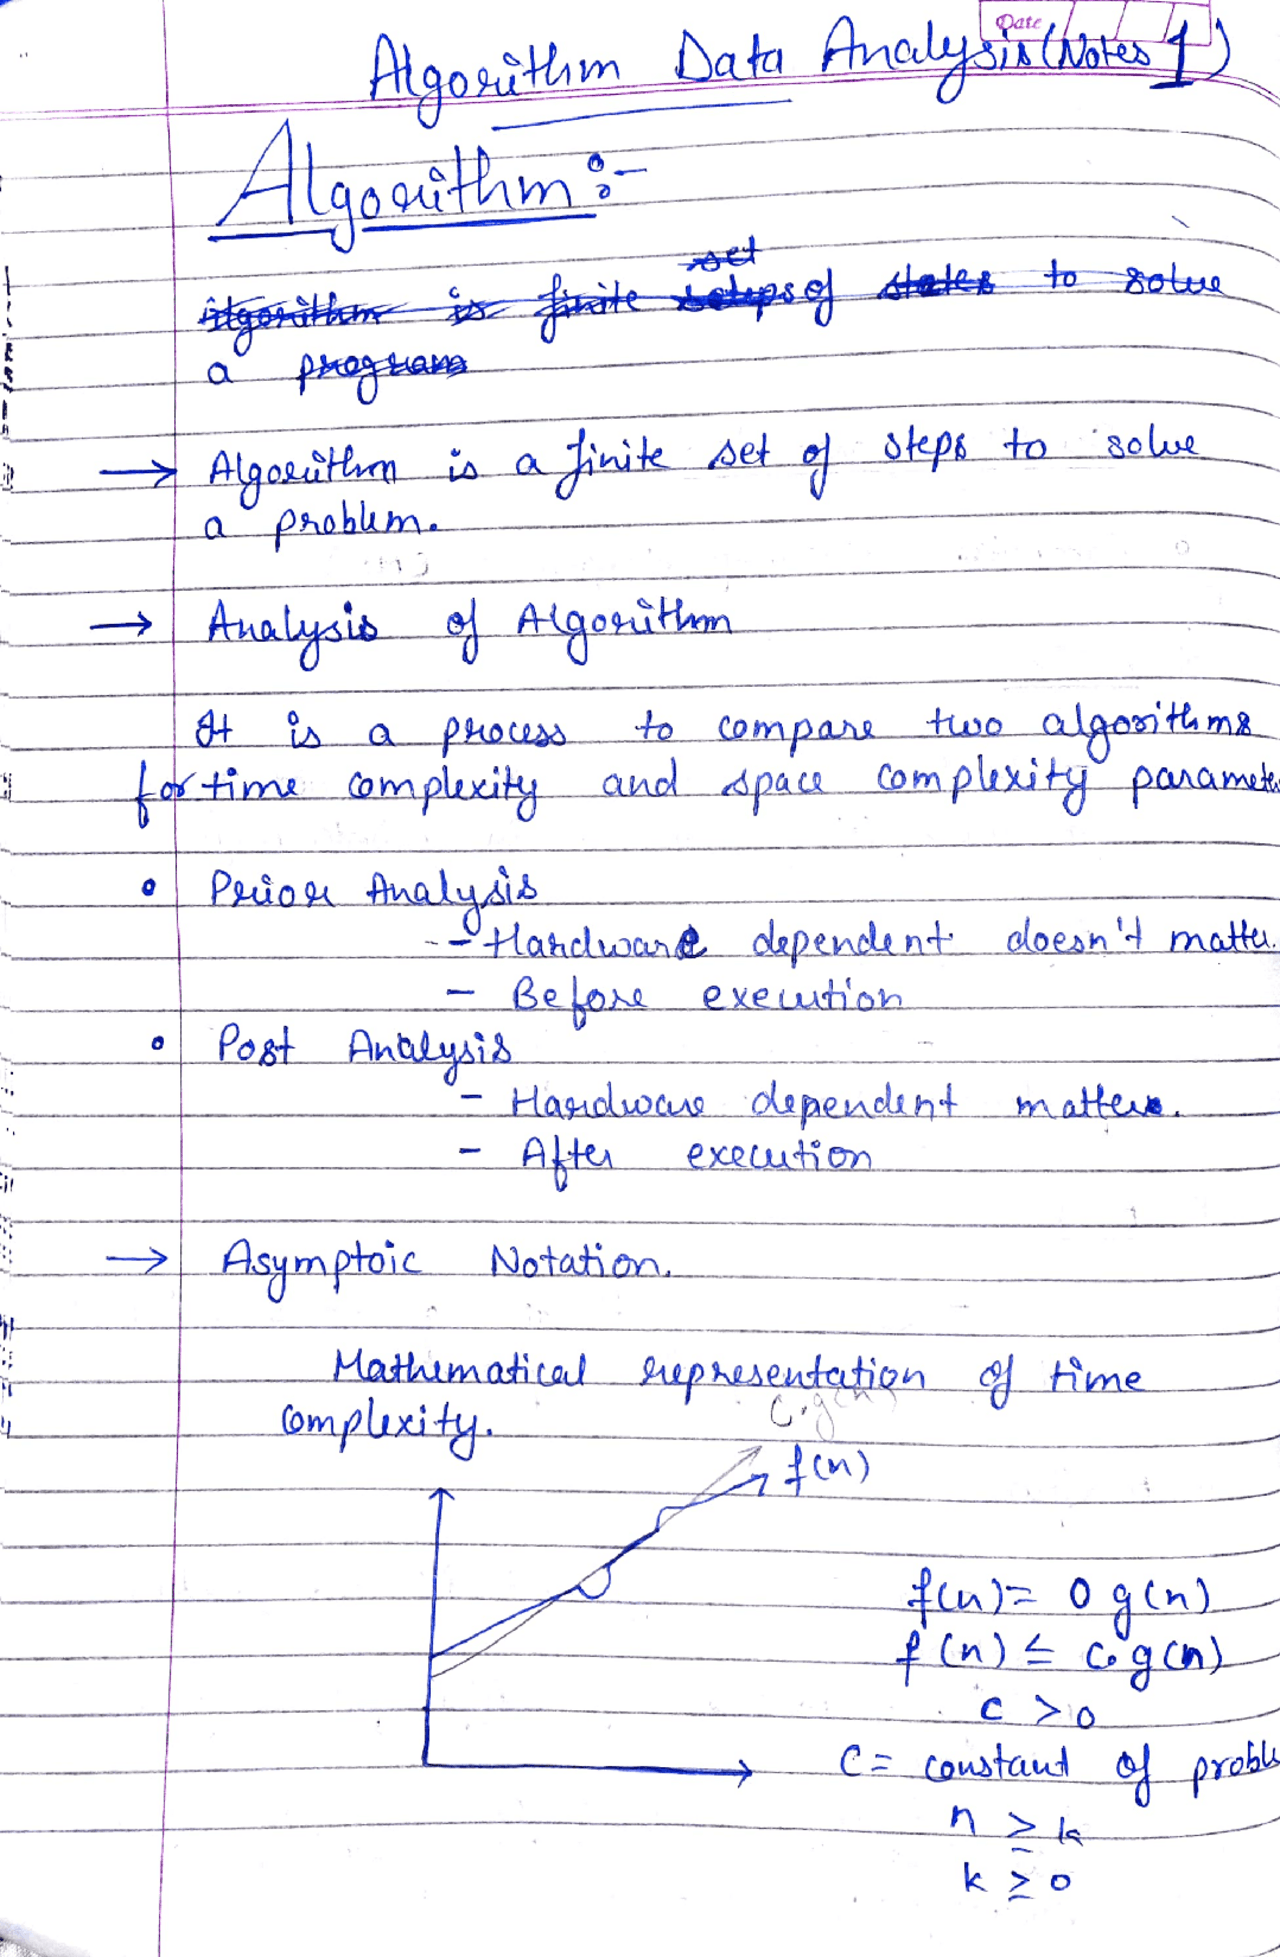 Date
Algorithm Data Analysis (Notes 1)
Algorithm :-
set
algorithm is finite steps of states to solve
a program
→ Algorithm is a finite set of steps to solve
a problem.
→ Analysis of Algorithm
It is a process to compare two algorithms
for time complexity and space complexity paramete
• Prior Analysis
- Hardware dependent doesn't matter.
- Before execution
• Post Analysis
- Hardware dependent matters.
- After execution
→ Asymptoic Notation.
Mathematical representation of time
complexity.
c.g(n)
f(n)
f(n) = O g(n)
f(n) ≤ c. g(n)
c > 0
C = constant of proble
n ≥ k
k ≥ 0